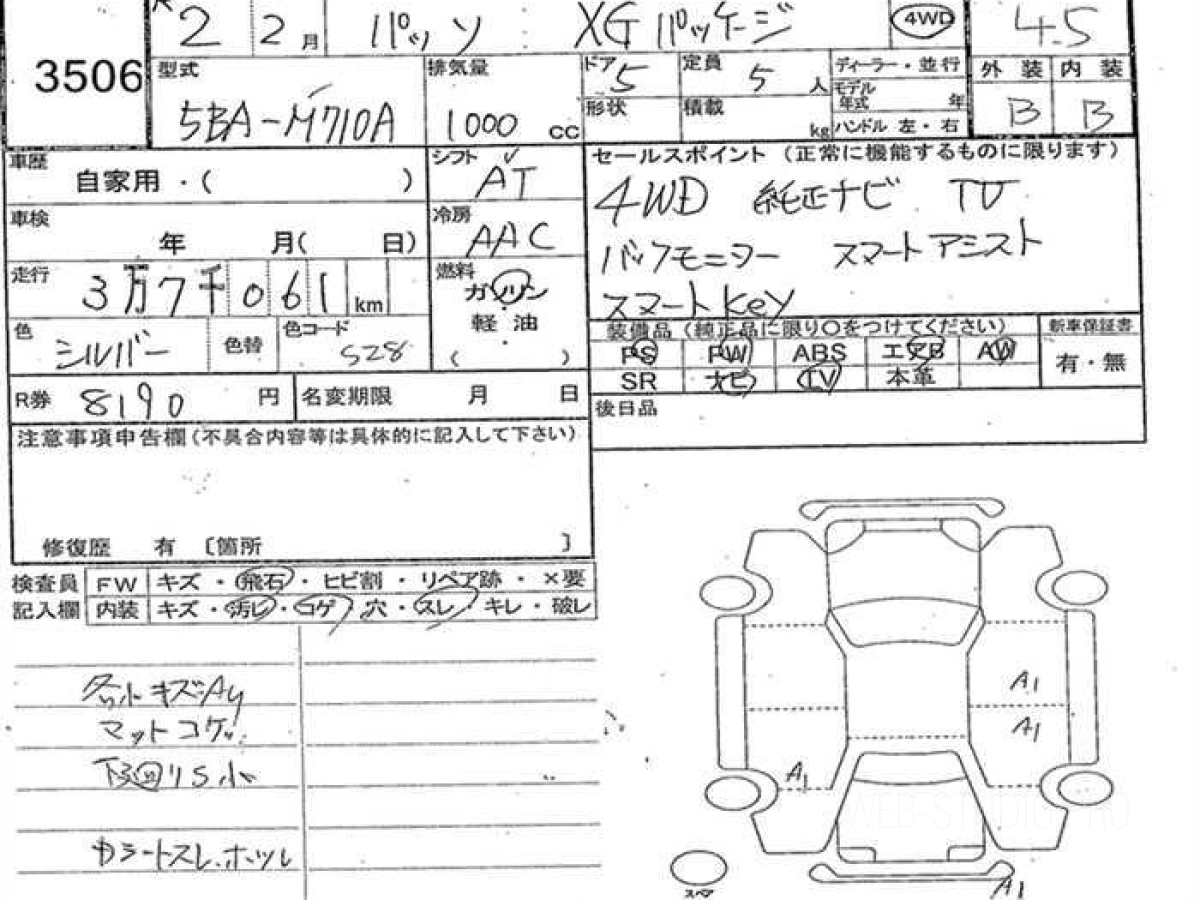 2 2月 パッソ XGパッケージ 4WD 4.5
3506
型式 排気量 ドア 5 定員 5 人 ディーラー・並行 外装 内装
モデル年式 年
5BA-M710A 1000 cc 形状 積載 kg ハンドル 左・右 B B
車歴 自家用・( ) シフト AT
セールスポイント (正常に機能するものに限ります)
車検 年 月( 日) 冷房 AAC
4WD 純正ナビ TV
バックモニター スマートアシスト
スマートKey
走行 3万7千061 km 燃料 ガソリン
軽油
( )
色 シルバー 色替 色コード S28
装備品 (純正品に限り○をつけてください) 新車保証書
PS PW ABS エアB AW 有・無
SR ナビ TV 本革
R券 8190 円 名変期限 月 日
後日品
注意事項申告欄(不具合内容等は具体的に記入して下さい)
修復歴 有 〔箇所 〕
検査員 FW キズ・飛石・ヒビ割・リペア跡・×要
記入欄 内装 キズ・汚れ・コゲ・穴・スレ・キレ・破レ
小キズ
マットコゲ
下廻り S 小
シートスレ.ホツレ
A1
A1
A1
A1
スペア
WEB-STUDIO.PRO